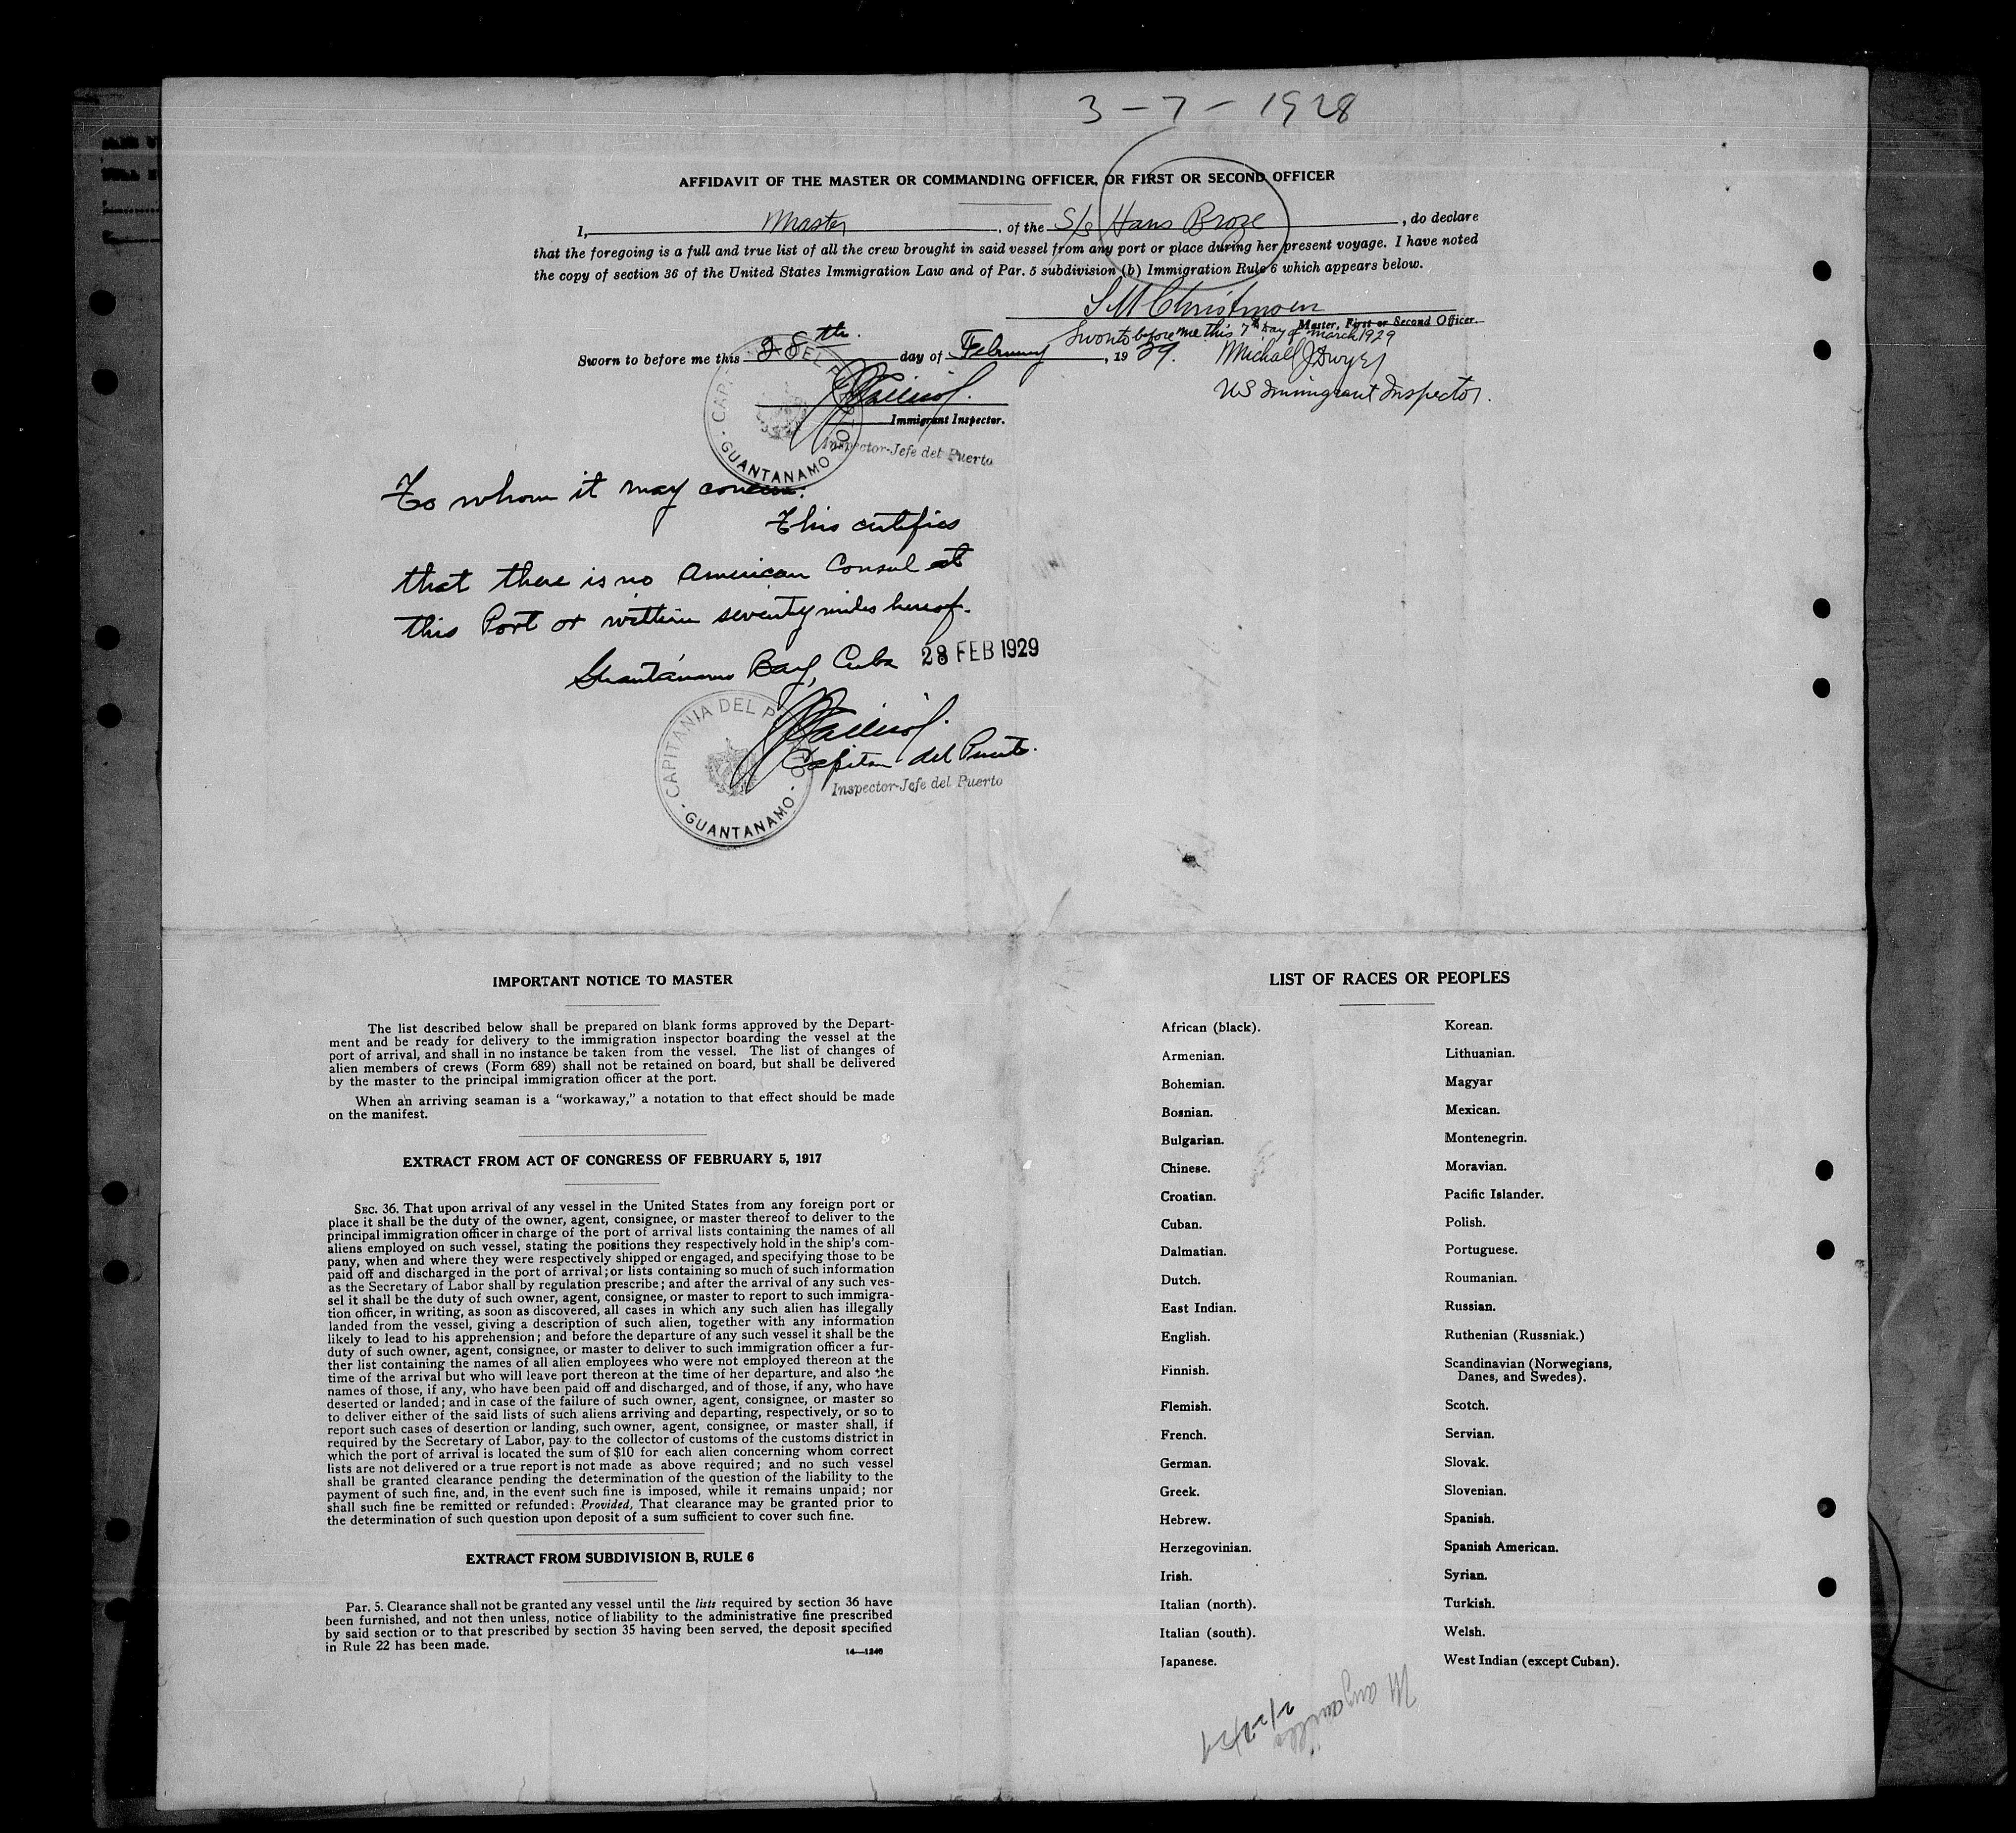 3 - 7 - 1928
AFFIDAVIT OF THE MASTER OR COMMANDING OFFICER, OR FIRST OR SECOND OFFICER
I, Master, of the S/S Hans Broge, do declare
that the foregoing is a full and true list of all the crew brought in said vessel from any port or place during her present voyage. I have noted
the copy of section 36 of the United States Immigration Law and of Par. 5 subdivision (b) Immigration Rule 6 which appears below.
Master, First or Second Officer.
Sworn to before me this 7th day of March 1929
Sworn to before me this 28th. day of February, 1929.
Michael J Dwyer
US Immigrant Inspector.
Immigrant Inspector.
Inspector-Jefe del Puerto
CAPITANIA DEL PUERTO
GUANTANAMO
To whom it may concern:
This certifies
that there is no American Consul at
this Port or within seventy miles hereof.
Guantánamo Bay, Cuba 28 FEB 1929
Capitan del Puerto.
Inspector-Jefe del Puerto
CAPITANIA DEL PUERTO
GUANTANAMO
IMPORTANT NOTICE TO MASTER
The list described below shall be prepared on blank forms approved by the Depart-
ment and be ready for delivery to the immigration inspector boarding the vessel at the
port of arrival, and shall in no instance be taken from the vessel. The list of changes of
alien members of crews (Form 689) shall not be retained on board, but shall be delivered
by the master to the principal immigration officer at the port.
When an arriving seaman is a "workaway," a notation to that effect should be made
on the manifest.
EXTRACT FROM ACT OF CONGRESS OF FEBRUARY 5, 1917
SEC. 36. That upon arrival of any vessel in the United States from any foreign port or
place it shall be the duty of the owner, agent, consignee, or master thereof to deliver to the
principal immigration officer in charge of the port of arrival lists containing the names of all
aliens employed on such vessel, stating the positions they respectively hold in the ship's com-
pany, when and where they were respectively shipped or engaged, and specifying those to be
paid off and discharged in the port of arrival; or lists containing so much of such information
as the Secretary of Labor shall by regulation prescribe; and after the arrival of any such ves-
sel it shall be the duty of such owner, agent, consignee, or master to report to such immigra-
tion officer, in writing, as soon as discovered, all cases in which any such alien has illegally
landed from the vessel, giving a description of such alien, together with any information
likely to lead to his apprehension; and before the departure of any such vessel it shall be the
duty of such owner, agent, consignee, or master to deliver to such immigration officer a fur-
ther list containing the names of all alien employees who were not employed thereon at the
time of the arrival but who will leave port thereon at the time of her departure, and also the
names of those, if any, who have been paid off and discharged, and of those, if any, who have
deserted or landed; and in case of the failure of such owner, agent, consignee, or master so
to deliver either of the said lists of such aliens arriving and departing, respectively, or so to
report such cases of desertion or landing, such owner, agent, consignee, or master shall, if
required by the Secretary of Labor, pay to the collector of customs of the customs district in
which the port of arrival is located the sum of $10 for each alien concerning whom correct
lists are not delivered or a true report is not made as above required; and no such vessel
shall be granted clearance pending the determination of the question of the liability to the
payment of such fine, and, in the event such fine is imposed, while it remains unpaid; nor
shall such fine be remitted or refunded: Provided, That clearance may be granted prior to
the determination of such question upon deposit of a sum sufficient to cover such fine.
EXTRACT FROM SUBDIVISION B, RULE 6
Par. 5. Clearance shall not be granted any vessel until the lists required by section 36 have
been furnished, and not then unless, notice of liability to the administrative fine prescribed
by said section or to that prescribed by section 35 having been served, the deposit specified
in Rule 22 has been made.
14—1240
LIST OF RACES OR PEOPLES
African (black).
Armenian.
Bohemian.
Bosnian.
Bulgarian.
Chinese.
Croatian.
Cuban.
Dalmatian.
Dutch.
East Indian.
English.
Finnish.
Flemish.
French.
German.
Greek.
Hebrew.
Herzegovinian.
Irish.
Italian (north).
Italian (south).
Japanese.
Korean.
Lithuanian.
Magyar
Mexican.
Montenegrin.
Moravian.
Pacific Islander.
Polish.
Portuguese.
Roumanian.
Russian.
Ruthenian (Russniak.)
Scandinavian (Norwegians,
Danes, and Swedes).
Scotch.
Servian.
Slovak.
Slovenian.
Spanish.
Spanish American.
Syrian.
Turkish.
Welsh.
West Indian (except Cuban).